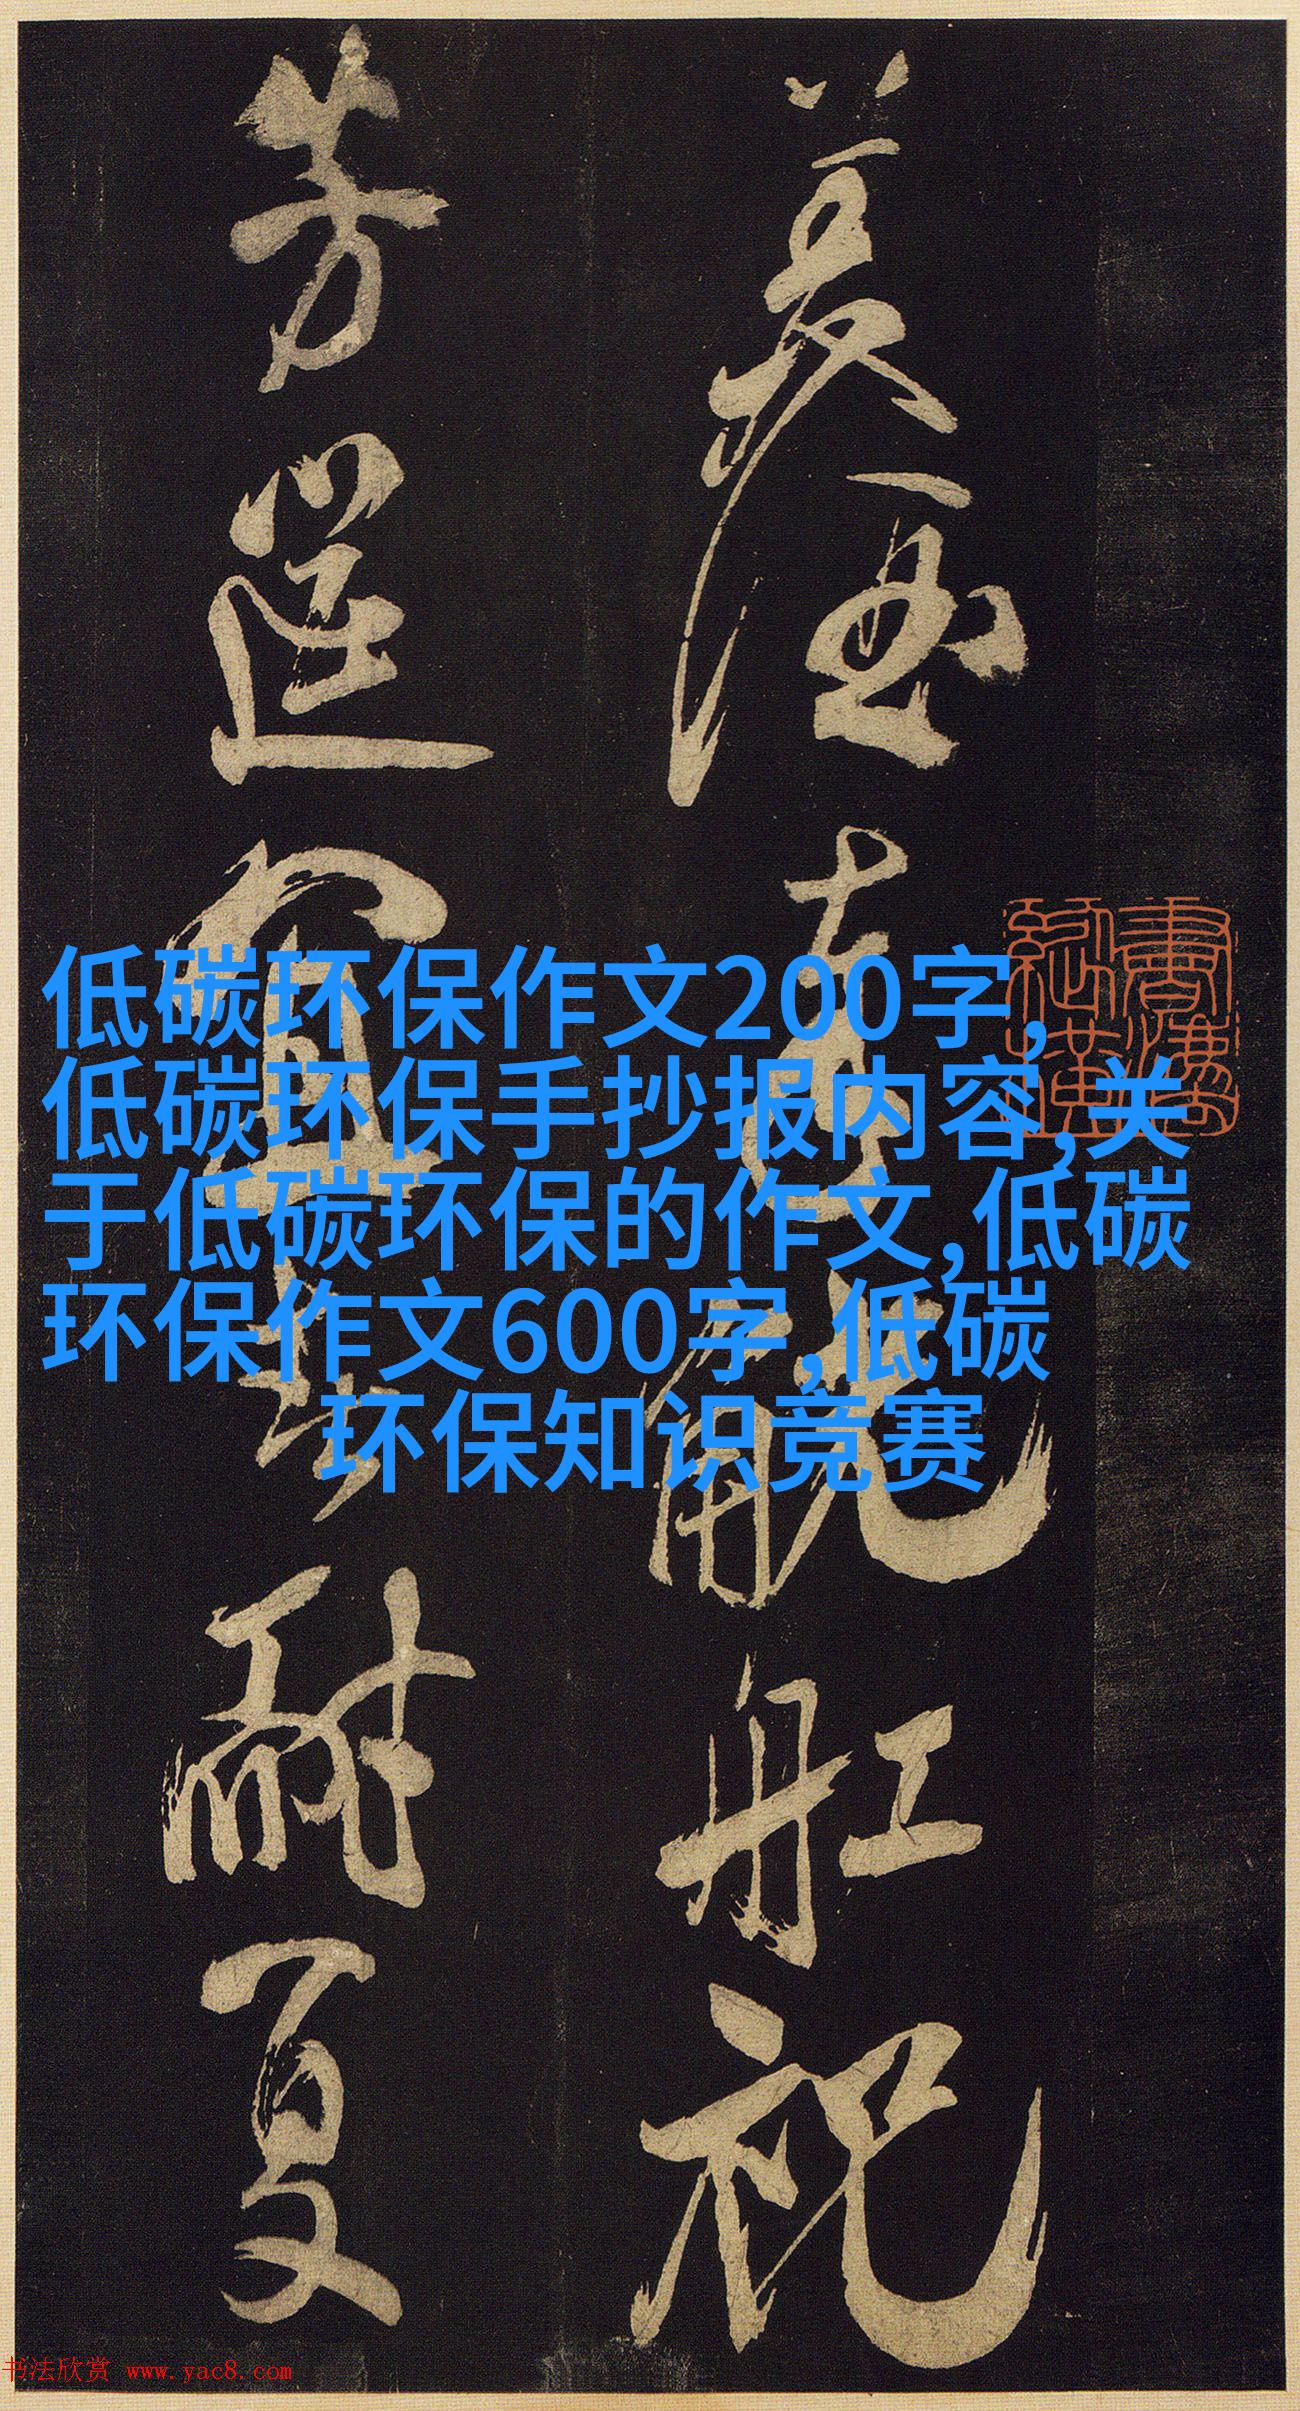 低碳环保作文200字,
低碳环保手抄报内容,关
于低碳环保的作文,低碳
环保作文600字,低碳
环保知识竞赛
美酒
舡祝
芳筵宜
耐夏
书法欣赏 www.yac8.com